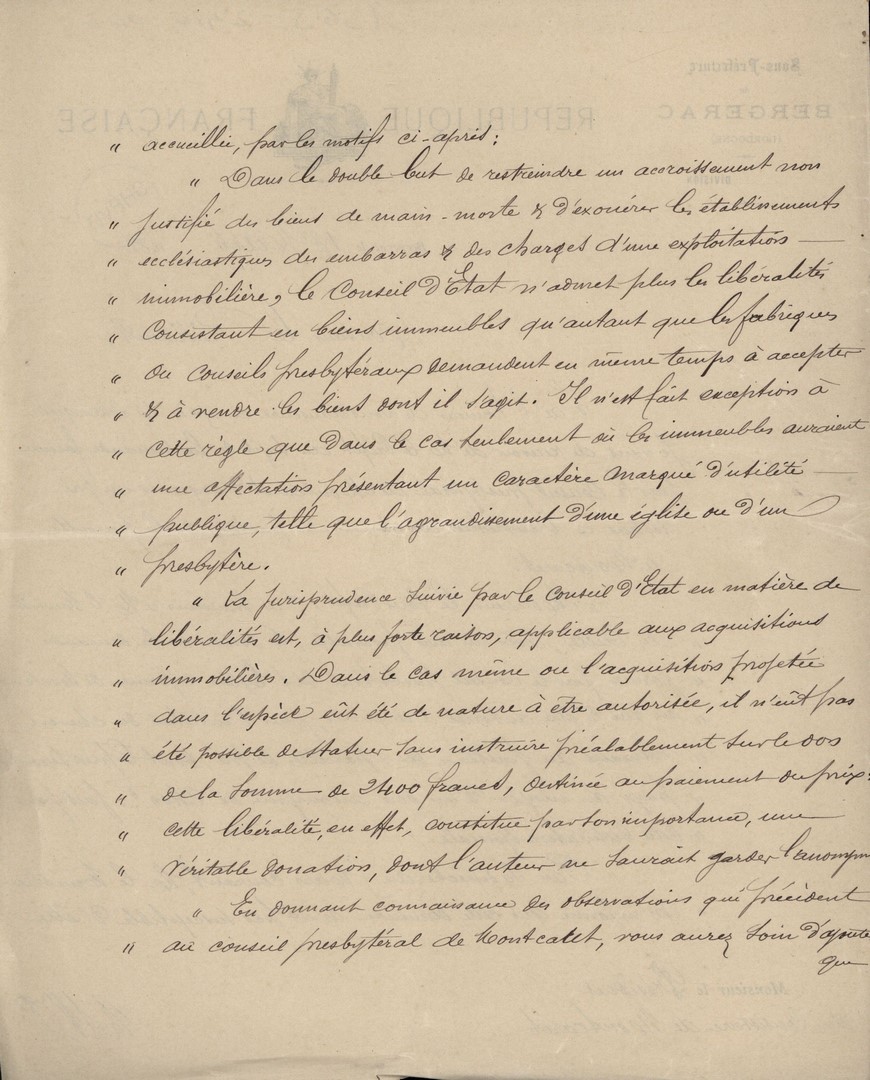 " accueillie, par les motifs ci-après :
" Dans le double but de restreindre un accroissement non
" justifié des biens de main-morte & d'exonérer les établissements
" ecclésiastiques des embarras & des charges d'une exploitation —
" immobilière, le Conseil d'Etat n'admet plus les libéralités
" Consistant en biens immeubles qu'autant que les fabriques
" ou conseils presbytéraux demandent en même temps à accepter
" & à vendre les biens dont il s'agit. Il n'est fait exception à
" cette règle que dans le cas seulement où les immeubles auraient
" une affectation présentant un caractère marqué d'utilité —
" publique, telle que l'agrandissement d'une église ou d'un
" presbytère.
" La jurisprudence suivie par le Conseil d'Etat en matière de
" libéralités est, à plus forte raison, applicable aux acquisitions
" immobilières. Dans le cas même ou l'acquisition projetée
" dans l'espèce eût été de nature à être autorisée, il n'eût pas
" été possible de statuer sans instruire préalablement sur le don
" de la somme de 2400 francs, destinée au paiement du prix :
" cette libéralité, en effet, constitue par son importance, une
" véritable donation, dont l'auteur ne saurait garder l'anonym
" En donnant connaissance des observations qui précèdent
" au conseil presbytéral de Montcaret, vous aurez soin d'ajoute
que
Sous-Préfecture
BERGERAC
RÉPUBLIQUE FRANÇAISE
DIVISION
Monsieur le